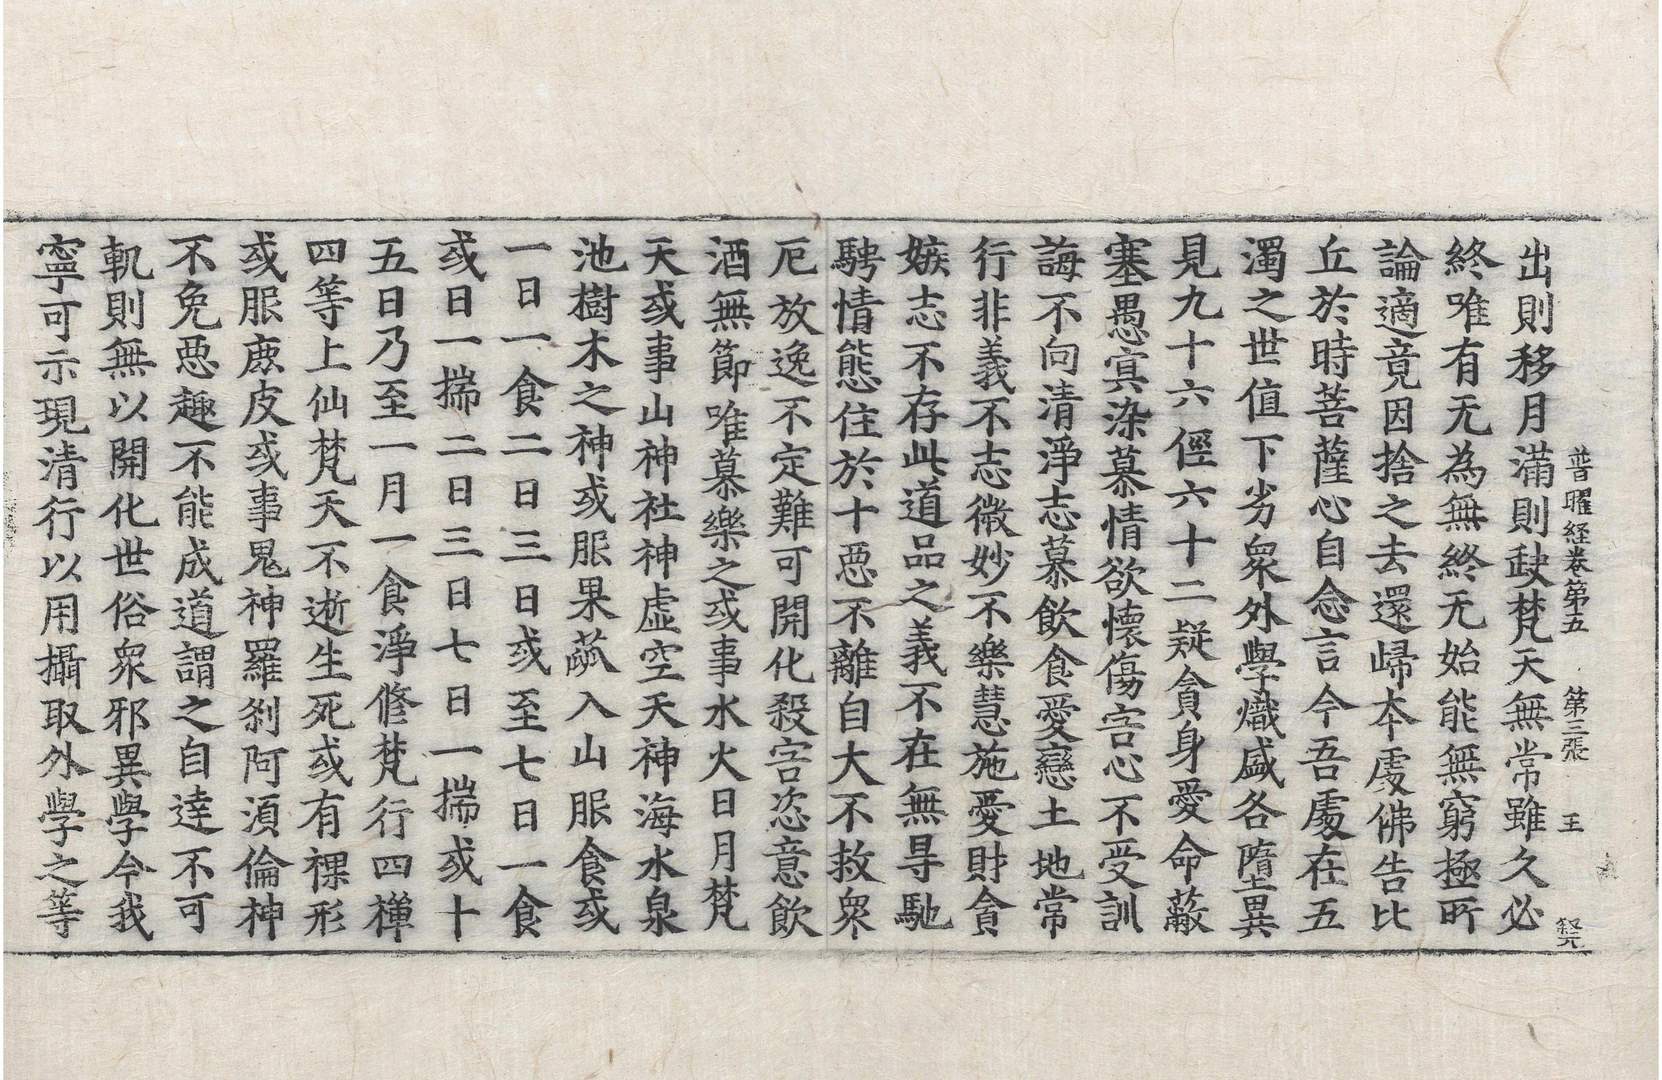 普曜経卷第五 第三張 王 釋元
出則移月滿則缺梵天無常雖久必
終唯有无為無終无始能無窮極所
論適竟因捨之去還歸本處佛告比
丘於時菩薩心自念言今吾處在五
濁之世值下劣眾外學熾盛各墮異
見九十六徑六十二疑貪身愛命蔽
塞愚冥染慕情欲懷傷害心不受訓
誨不向清淨志慕飲食愛戀土地常
行非義不志微妙不樂慧施愛財貪
嫉志不存此道品之義不在無㝵馳
騁情態住於十惡不離自大不救眾
厄放逸不定難可開化殺害恣意飲
酒無節唯慕樂之或事水火日月梵
天或事山神社神虛空天神海水泉
池樹木之神或服果蓏入山服食或
一日一食二日三日或至七日一食
或日一揣二日三日七日一揣或十
五日乃至一月一食淨修梵行四禪
四等上仙梵天不逝生死或有裸形
或服鹿皮或事鬼神羅剎阿須倫神
不免惡趣不能成道謂之自達不可
軌則無以開化世俗眾邪異學今我
寧可示現清行以用攝取外學之等